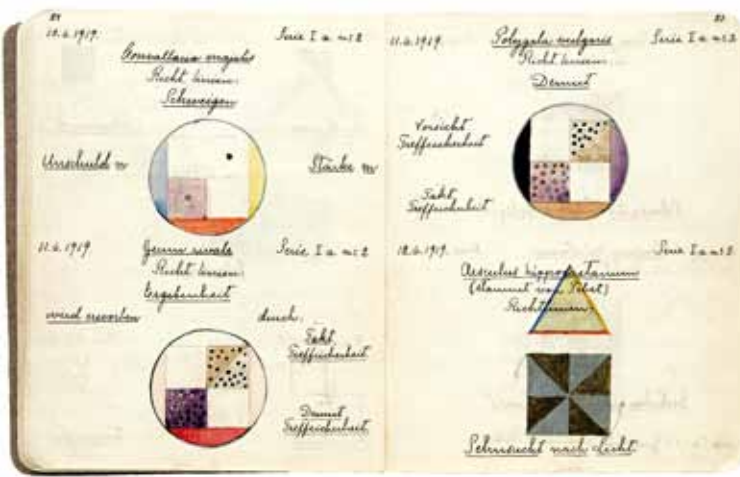 10.6.1919. Serie I a nr: 2
Convallaria majalis
Richt linien:
Schweigen
Unschuld Stärke
11.6.1919 Geum rivale Serie I a nr: 2
Richt linien:
Ergebenheit
wird erworben durch:
Takt
Treffsicherheit
Demut
Treffsicherheit
11.6.1919. Polygala vulgaris Serie I a nr: 2
Richt linien:
Demut
Vorsicht
Treffsicherheit
Takt
Treffsicherheit
12.6.1919. Serie I a nr: 2
Aesculus hippocastanum
(stammt von Tibet)
Richtlinien:
Sehnsucht nach Licht